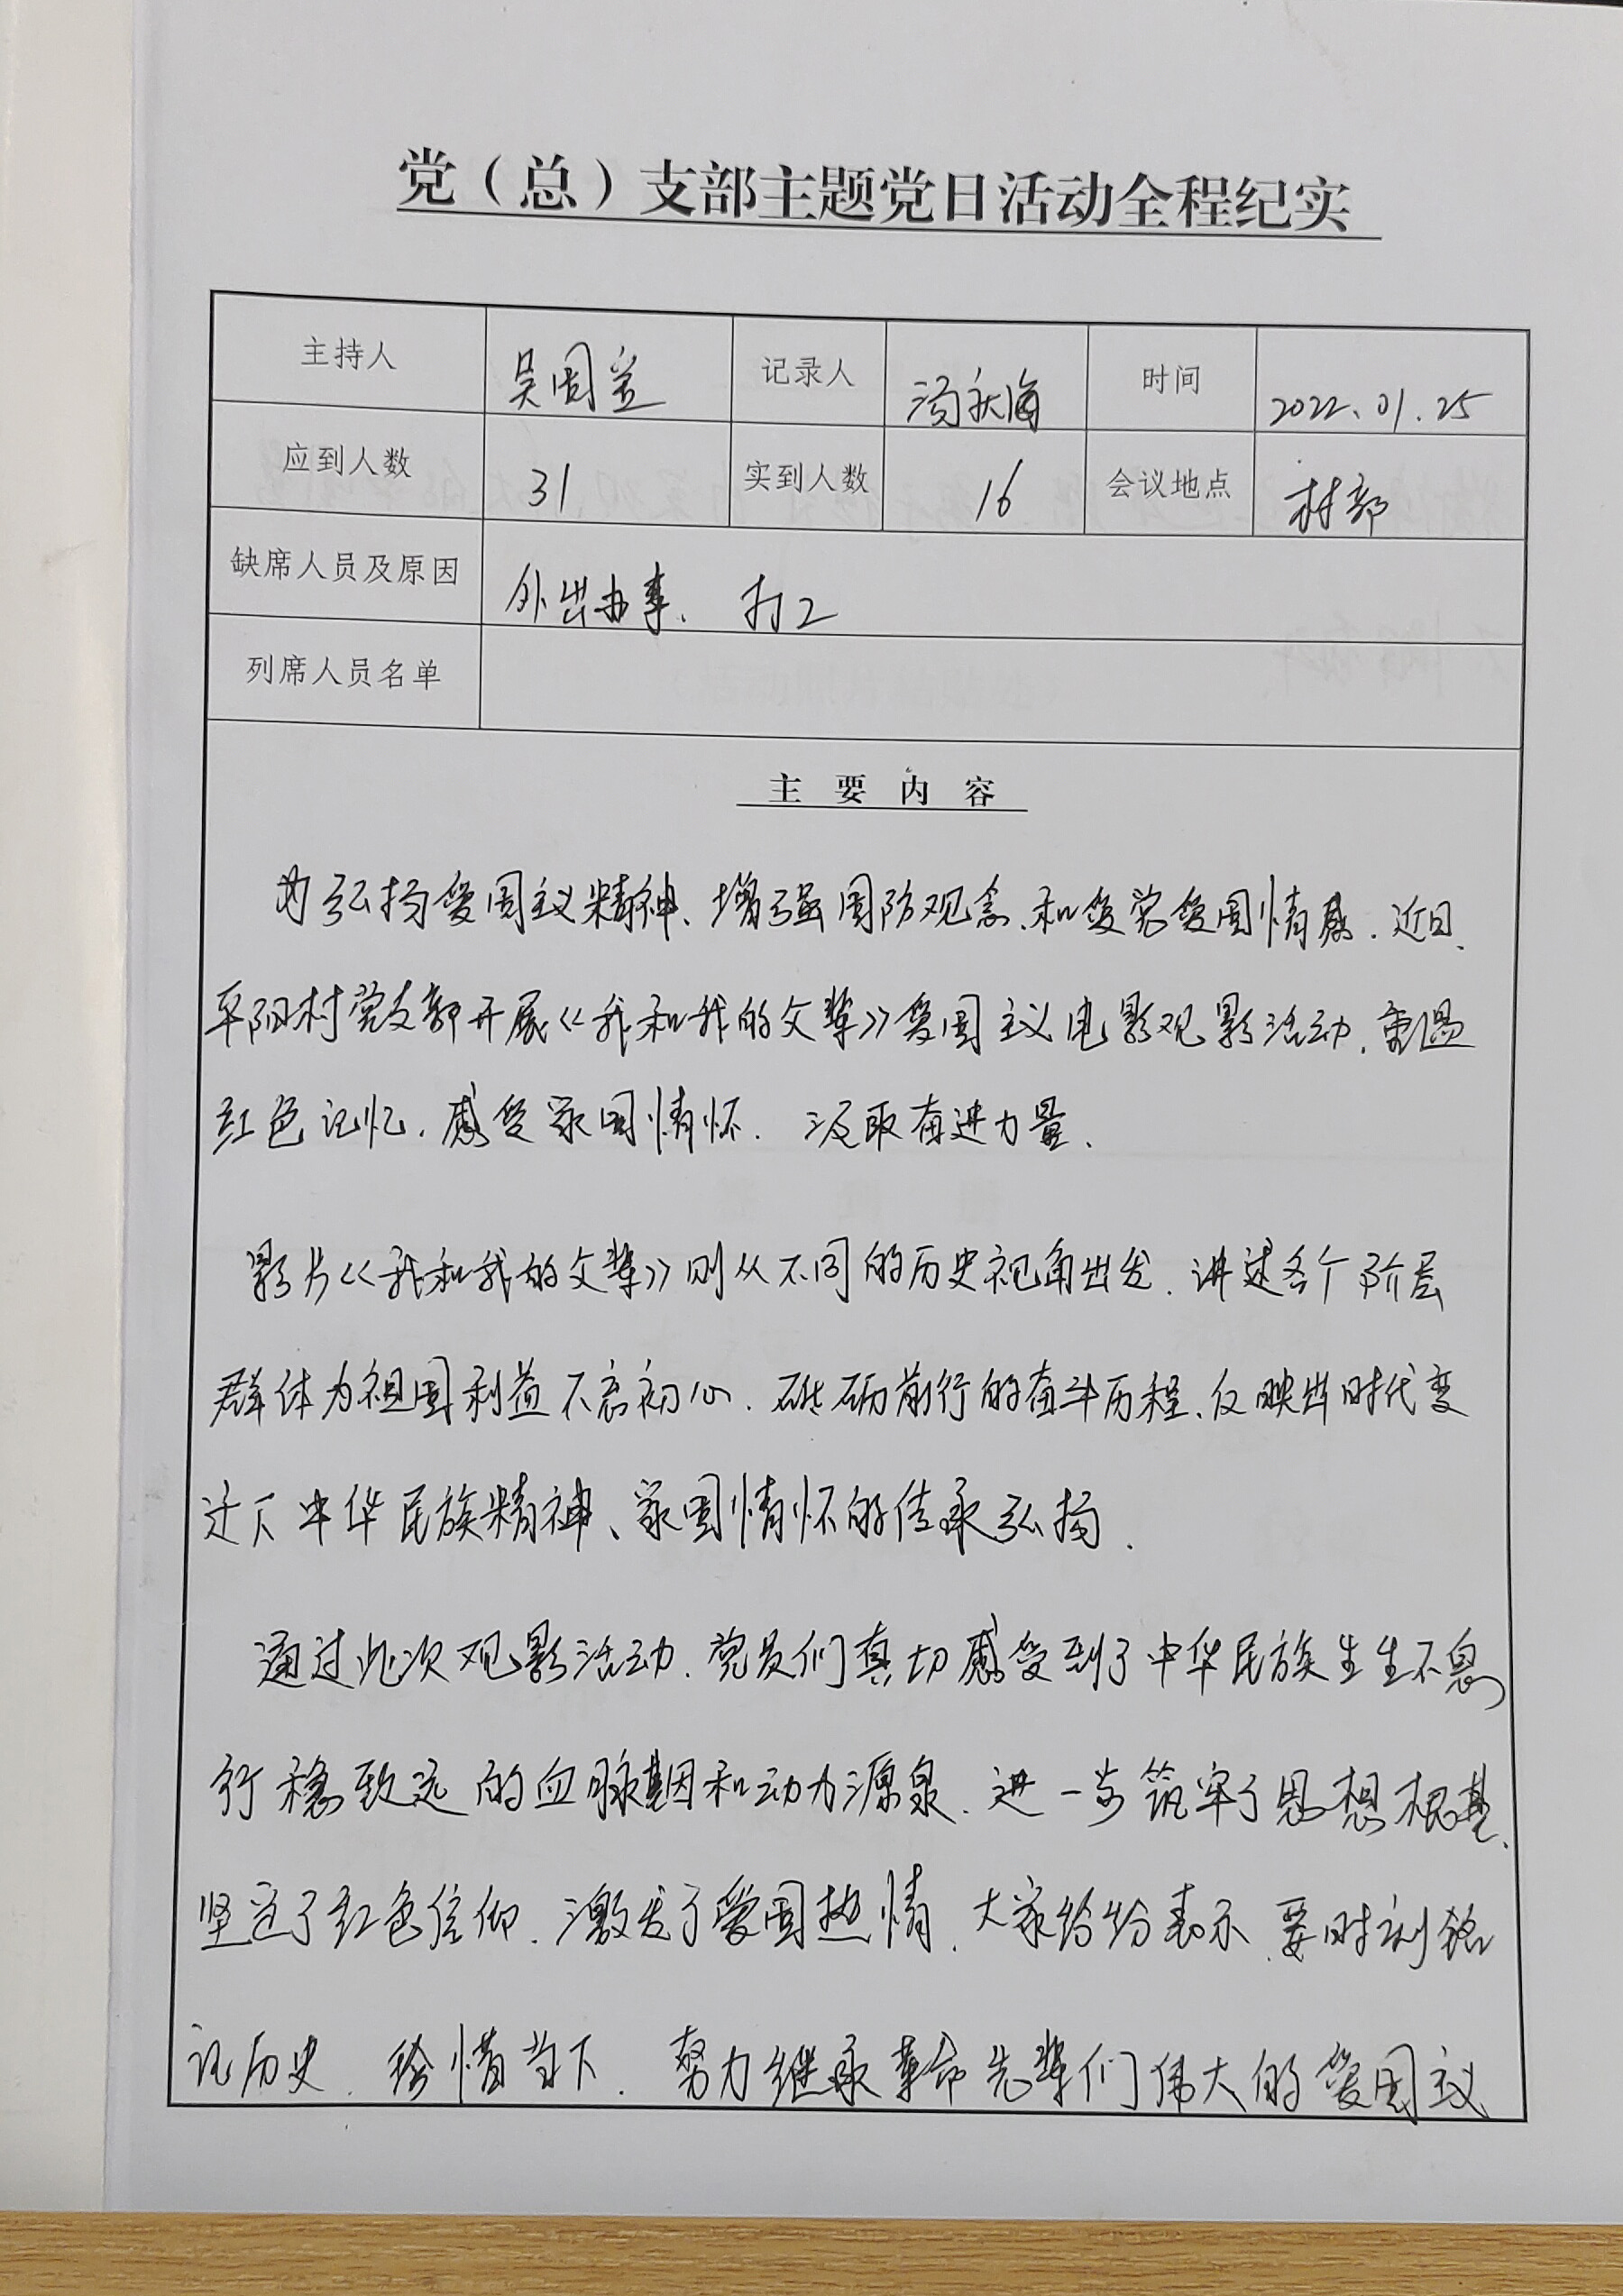 党（总）支部主题党日活动全程纪实
主持人 吴国 记录人 汤秋海 时间 2022.01.25
应到人数 31 实到人数 16 会议地点 村部
缺席人员及原因 外出办事、打工
列席人员名单
主要内容
为弘扬爱国主义精神、增强国防观念、和爱党爱国情感.近日、
平阳村党支部开展《我和我的父辈》爱国主义电影观影活动,重温
红色记忆,感受家国情怀.汲取奋进力量.
影片《我和我的父辈》则从不同的历史视角出发.讲述各个阶层
群体为祖国利益不忘初心.砥砺前行的奋斗历程,反映出时代变
迁下中华民族精神、家国情怀的传承弘扬.
通过此次观影活动.党员们真切感受到了中华民族生生不息
行稳致远的血脉基因和动力源泉.进一步筑牢了思想根基、
坚定了红色信仰.激发了爱国热情.大家纷纷表示.要时刻铭
记历史.珍惜当下.努力继承革命先辈们伟大的爱国主义